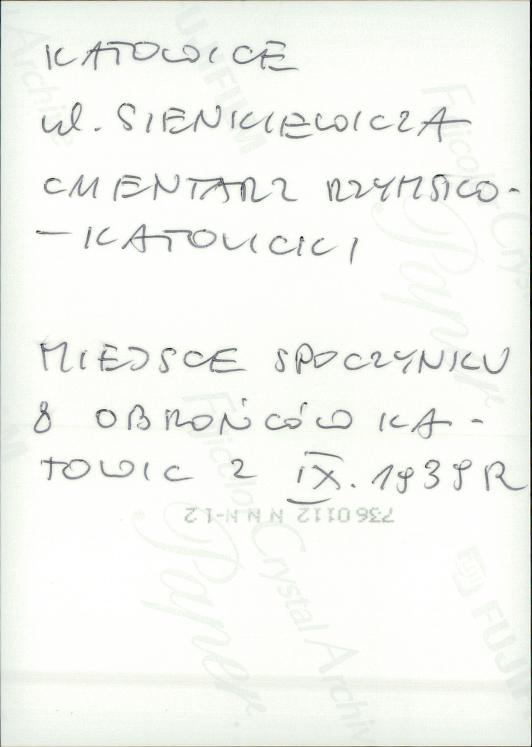 KATOWICE
ul. SIENKIEWICZA
CMENTARZ RZYMSKO-
-KATOLICKI
MIEJSCE SPOCZYNKU
8 OBROŃCÓW KA-
TOWIC Z IX. 1939R
736 0112 N N N-12
Fujicolor Crystal Archive
Paper
FUJIFILM